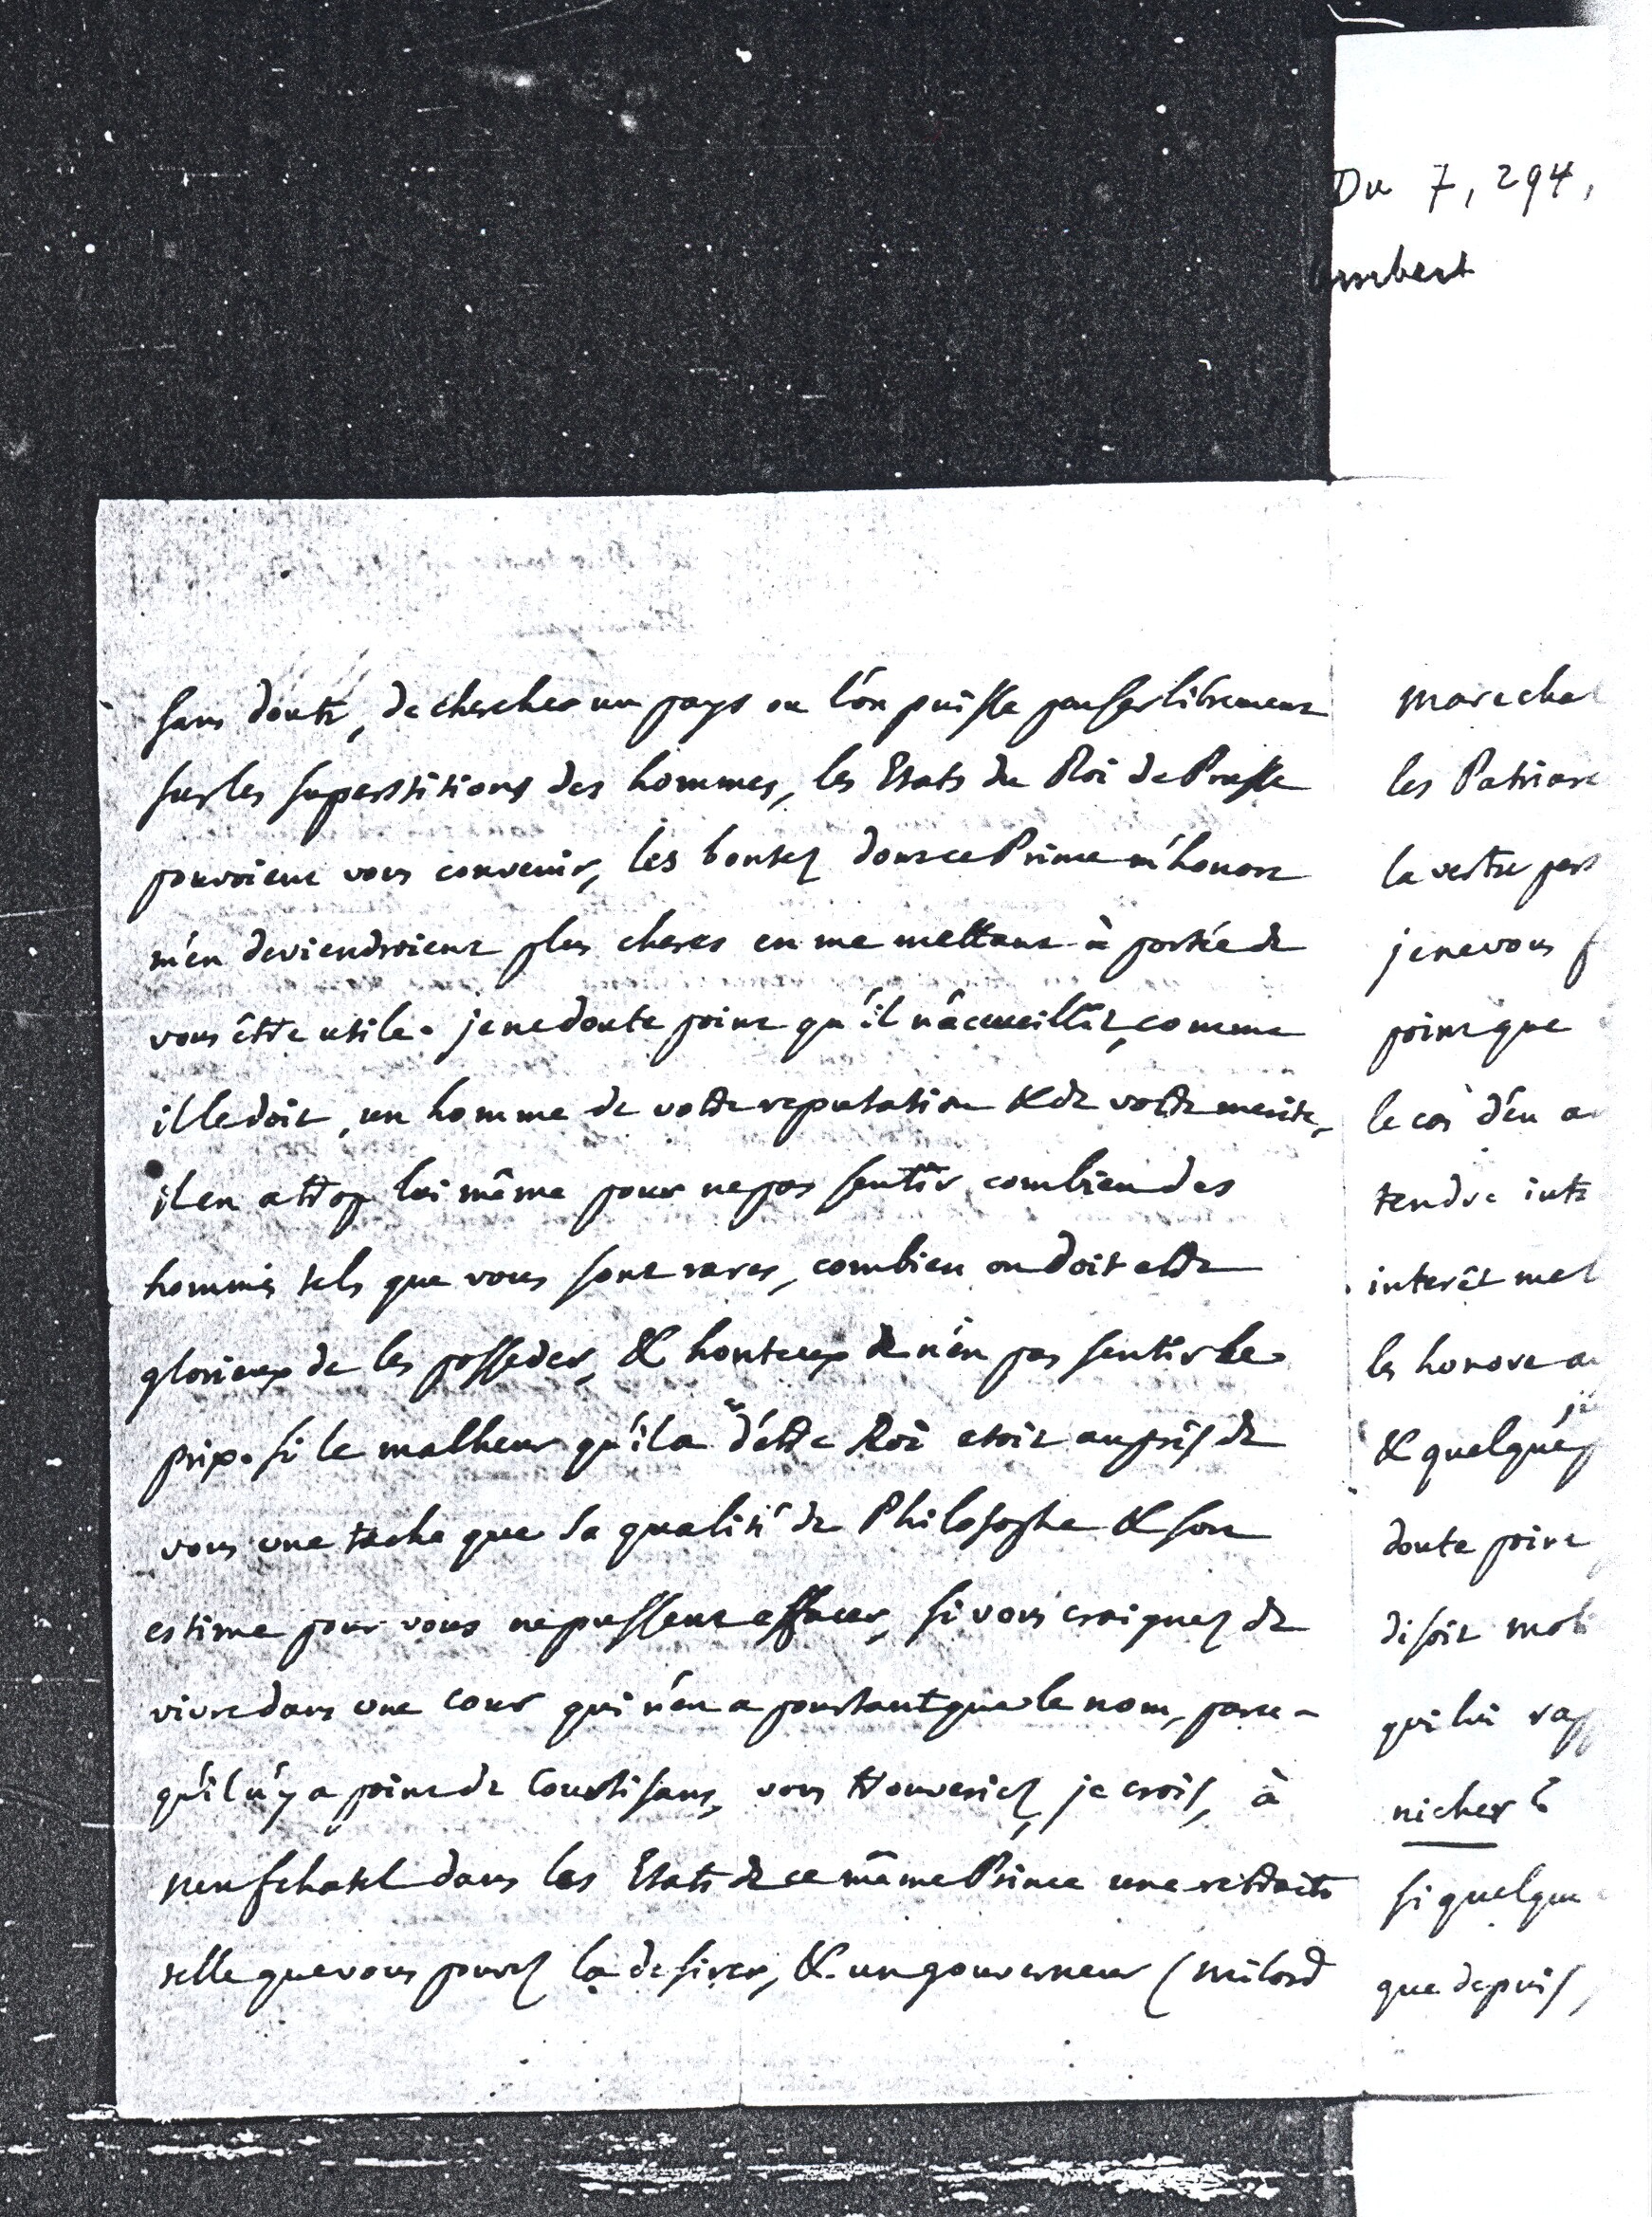 Du 7, 294,
mbert
sans doute, de chercher un pays ou l'on puisse penser librement
sur les superstitions des hommes, les Etats du Roi de Prusse
pouvoient vous convenir, les bontez dont ce Prince m'honore
m'en deviendroient plus cheres en me mettant à portée de
vous être utile. je ne doute point qu'il n'accueillît, comme
il le doit, un homme de votre reputation & de votre merite,
il en a trop lui même pour ne pas sentir combien des
hommes tels que vous sont rares, combien on doit etre
glorieux de les posseder, & honteux de n'en pas sentir le
prix. si le malheur qu'il a d'être Roi etoit auprès de
vous une tache que sa qualité de Philosophe & son
estime pour vous ne pussent effacer, si vous craignez de
vivre dans une cour qui n'en a pourtant que le nom, parce-
qu'il n'y a point de Courtisans, vous trouveriez, je crois, à
neufchatel dans les Etats de ce même Prince une retraite
telle que vous pouvez la desirer, & un gouverneur (milord
marechal
les Patriarc
la vertu pers
je ne vous
point que
le cas d'en a
tendre inte
interêt mel
les honore a
& quelque
doute point
disoit mol
qui lui rapp
nicher
si quelque
que depuis,